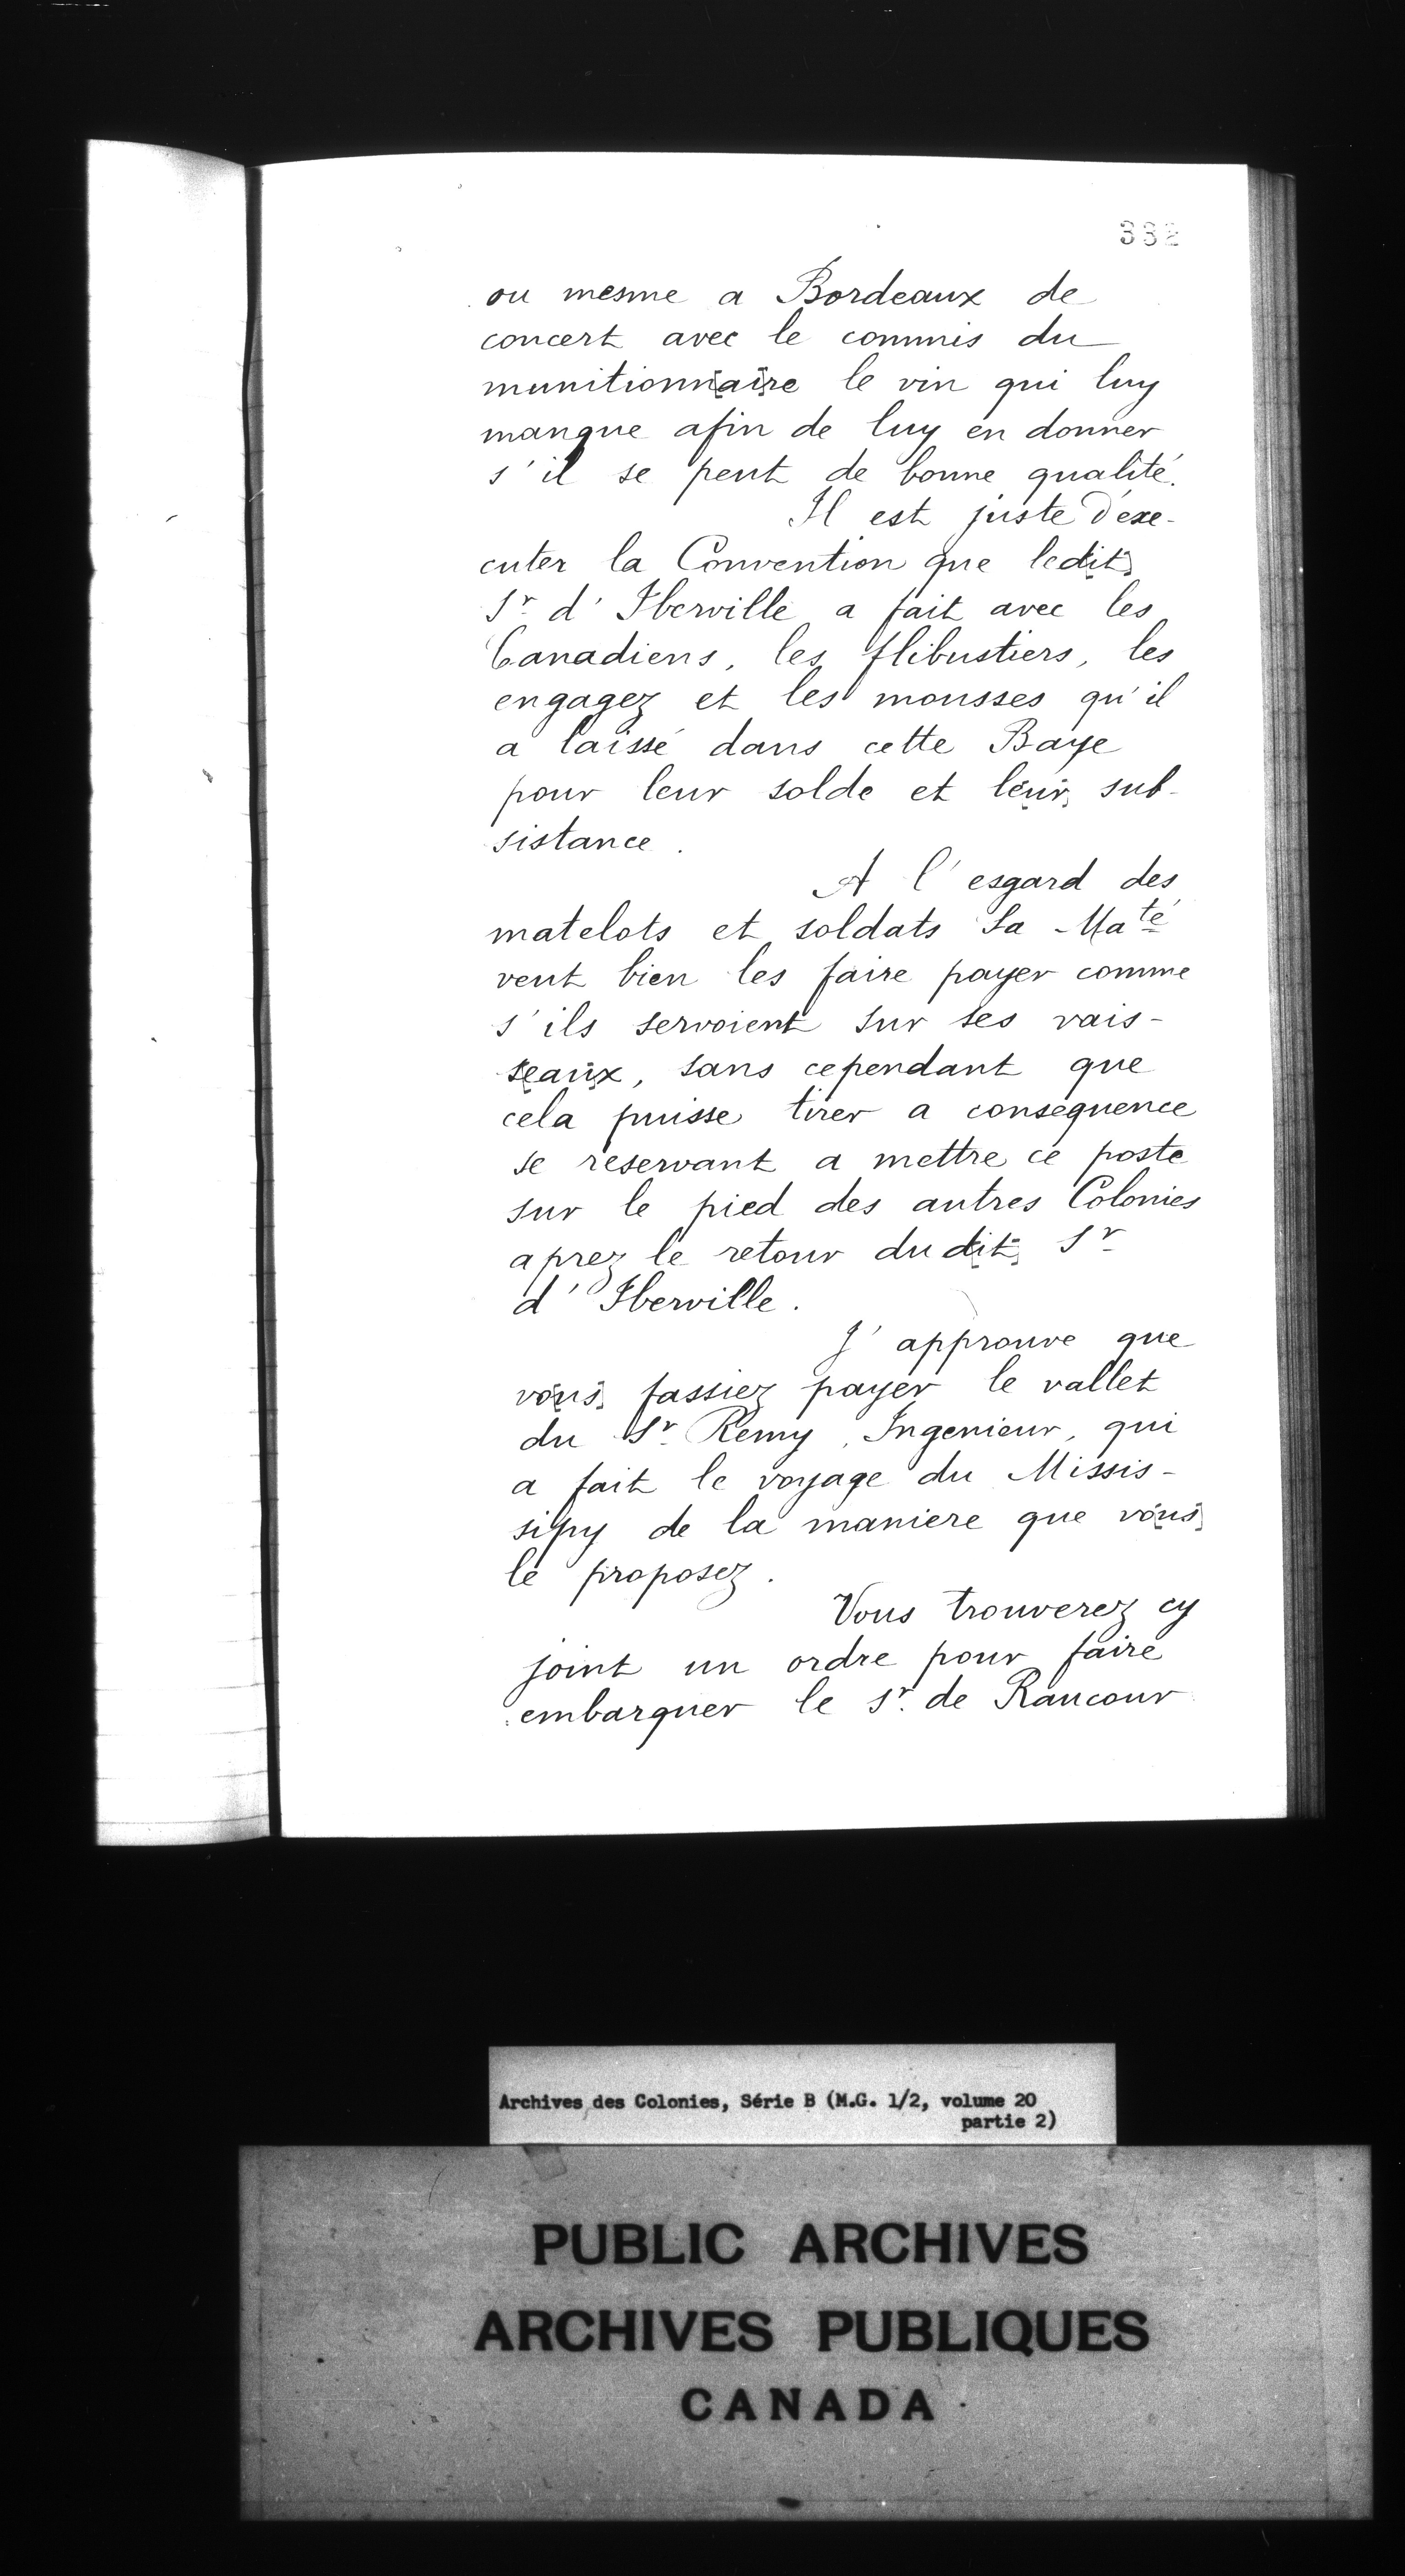 332
ou mesme a Bordeaux de
concert avec le commis du
munitionn[ai]re le vin qui luy
manque afin de luy en donner
s'il se peut de bonne qualité.
Il est juste d'exe-
cuter la Convention que led[it]
Sr. d'Iberville a fait avec les
Canadiens, les flibustiers, les
engagez et les mousses qu'il
a laissé dans cette Baye
pour leur solde et le[ur] sub-
sistance.
A l'esgard des
matelots et soldats Sa Maté
veut bien les faire payer comme
s'ils servoient sur ses vais-
s[eau]x, sans cependant que
cela puisse tirer a consequence
se réservant a mettre ce poste
sur le pied des autres Colonies
aprez le retour dud[it] Sr.
d'Iberville.
J'approuve que
vo[us] fassiez payer le vallet
du Sr. Remy, Ingenieur, qui
a fait le voyage du Missis-
sipy de la maniere que vo[us]
le proposez.
Vous trouverez cy
joint un ordre pour faire
embarquer le Sr. de Rancour
Archives des Colonies, Série B (M.G. 1/2, volume 20
partie 2)
PUBLIC ARCHIVES
ARCHIVES PUBLIQUES
CANADA